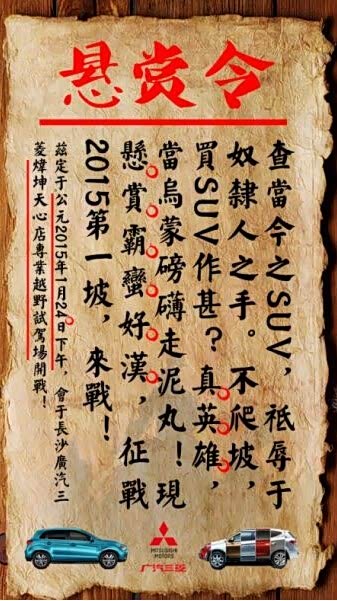 悬赏令
查當今之SUV，祇辱于
奴隸人之手。不爬坡，
買SUV作甚？真英雄，
當烏蒙磅礴走泥丸！現
懸賞霸蠻好漢，征戰
2015第一坡，來戰！
茲定于公元2015年1月24日下午，會于長沙廣汽三
菱煒坤天心店專業越野試駕場開戰！
MITSUBISHI
MOTORS
广汽三菱